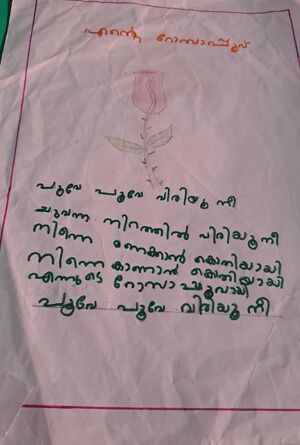 എന്റെ റോസാപ്പൂവ്
പൂവേ പൂവേ വിരിയൂ നീ
ചുവന്ന നിറത്തിൽ വിരിയൂനീ
നിന്നെ മണക്കാൻ കൊതിയായി
നിന്നെ കാണാൻ കൊതിയായി
എന്നുടെ റോസാപ്പൂവായി
പൂവേ പൂവേ വിരിയൂ നീ